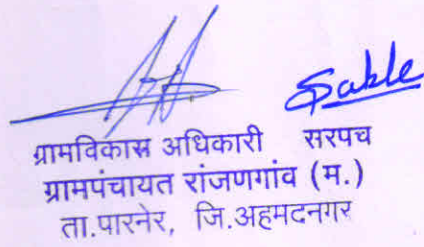 Sable
ग्रामविकास अधिकारी सरपच
ग्रामपंचायत रांजणगांव (म.)
ता.पारनेर, जि.अहमदनगर